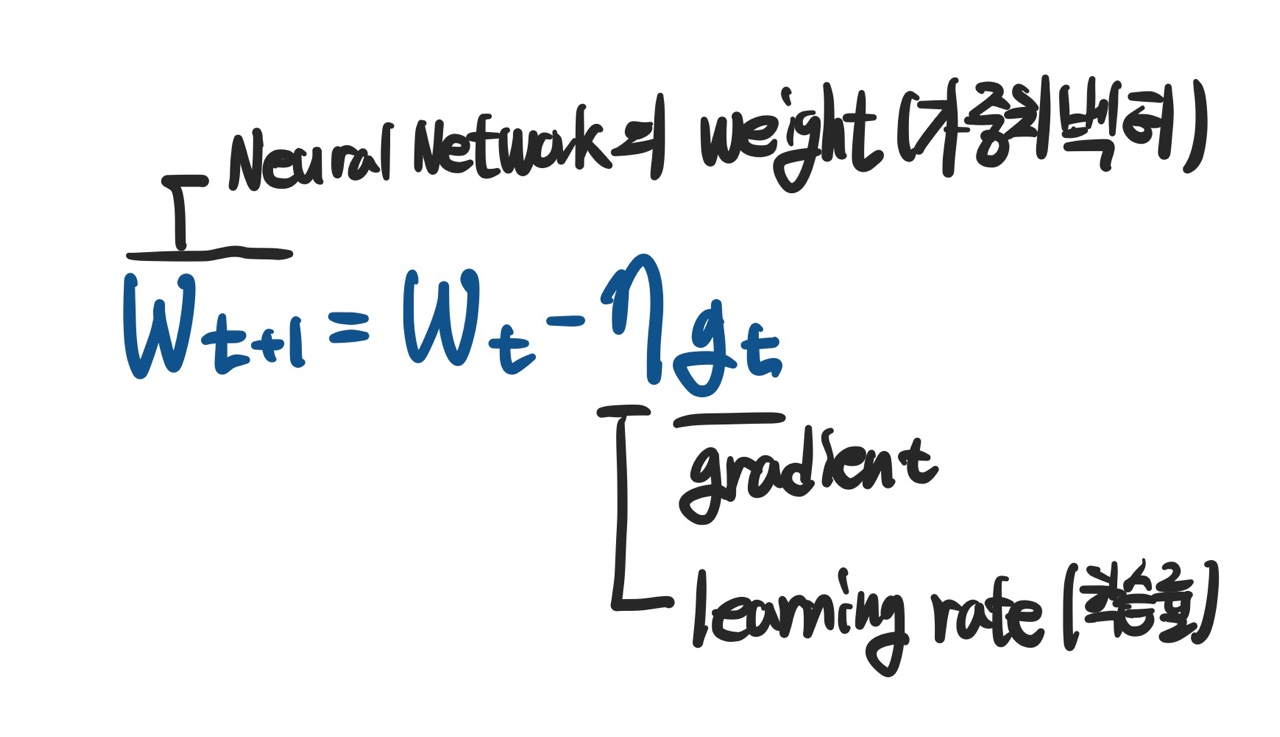 Neural Network의 weight (가중치 벡터)
Wt+1 = Wt - ηgt
gradient
learning rate (학습률)